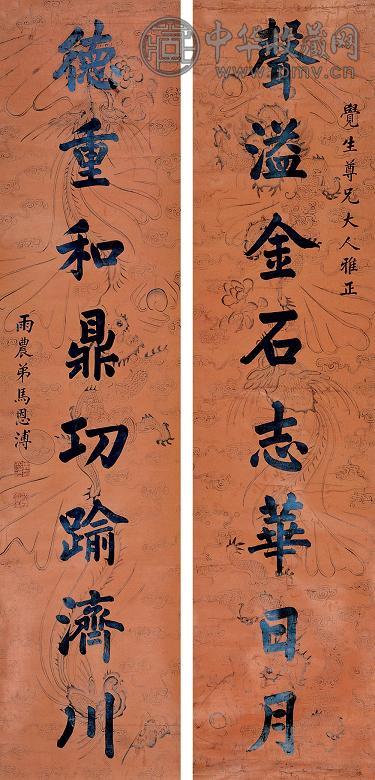 中华收藏网
www.pmv.cn
覺生尊兄大人雅正
聲溢金石志華日月
德重和鼎功踰濟川
雨農弟馬恩溥